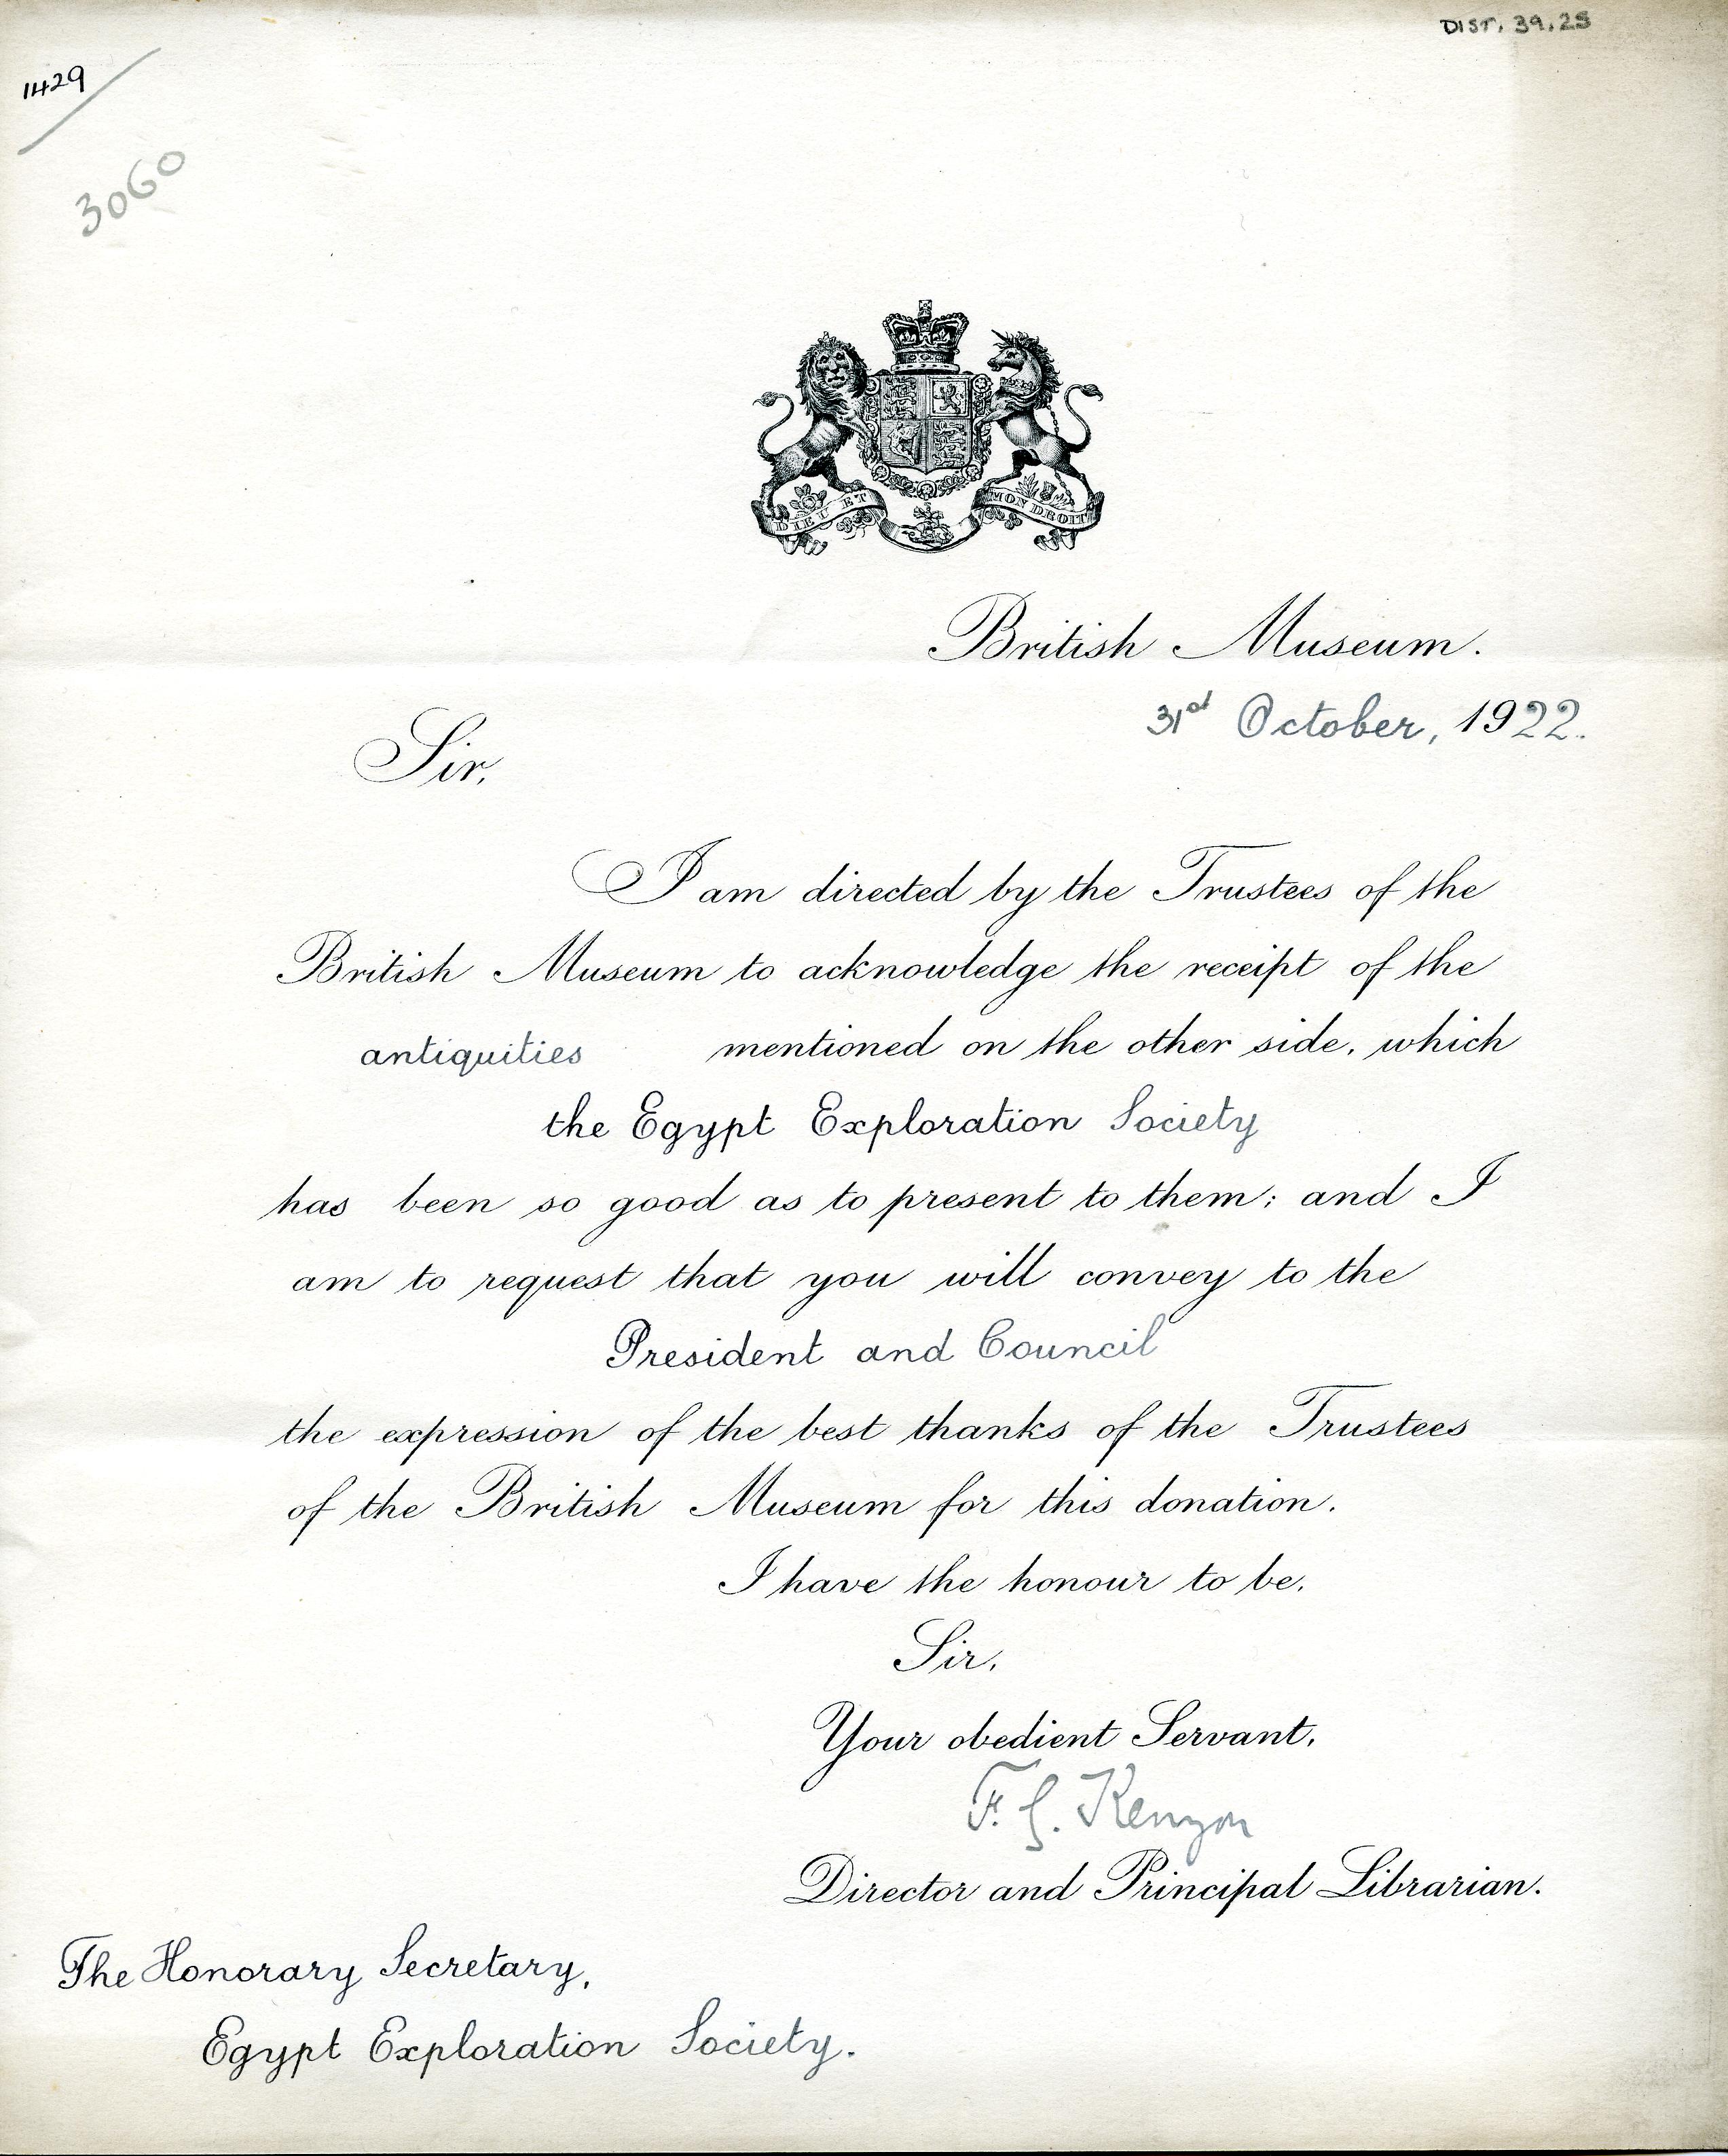 DIST. 39.25
1429
3060
DIEU ET MON DROIT
British Museum.
31st October, 1922.
Sir,
I am directed by the Trustees of the
British Museum to acknowledge the receipt of the
antiquities mentioned on the other side, which
the Egypt Exploration Society
has been so good as to present to them; and I
am to request that you will convey to the
President and Council
the expression of the best thanks of the Trustees
of the British Museum for this donation.
I have the honour to be,
Sir,
Your obedient Servant,
F. G. Kenyon
Director and Principal Librarian.
The Honorary Secretary,
Egypt Exploration Society.